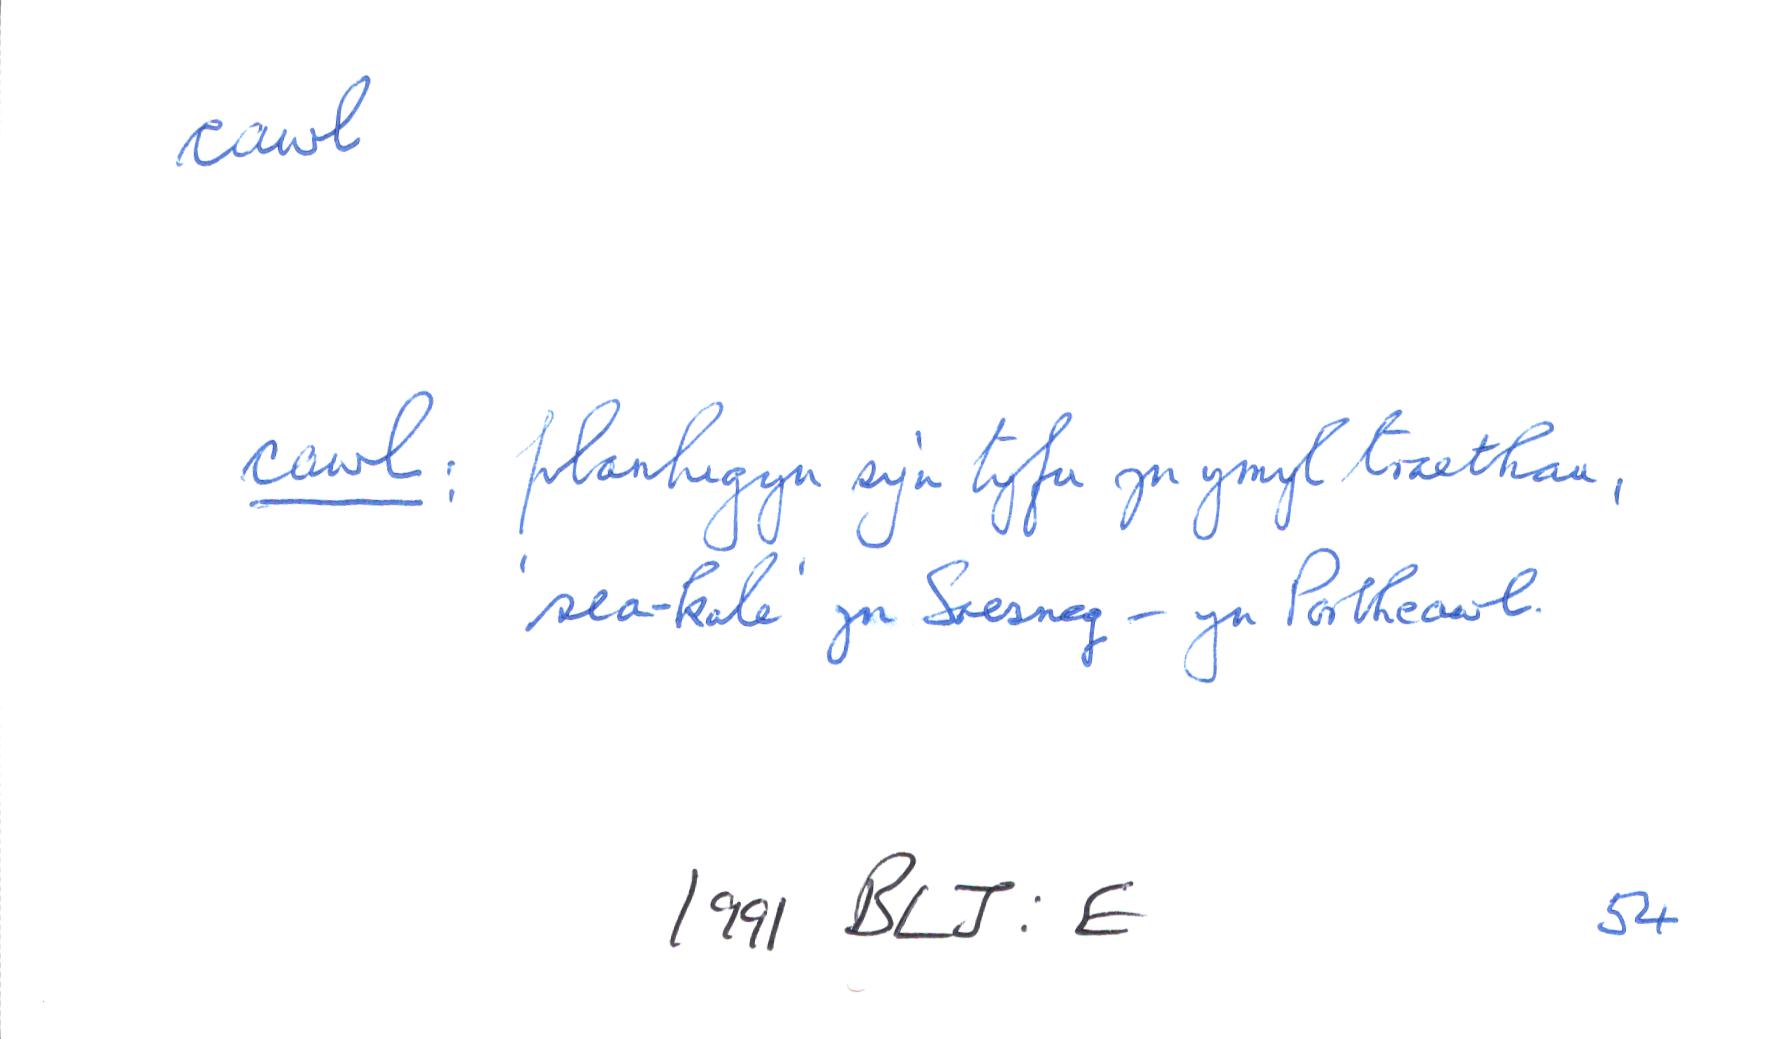 cawl
cawl: planhigyn sy'n tyfu yn ymyl traethau,
'sea-kale' yn Saesneg – yn Porthcawl.
1991 BLJ: E 54